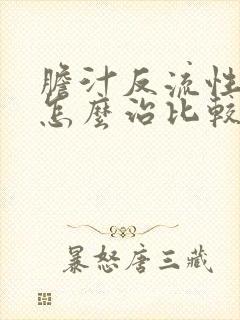 膽汁反流性
怎麼治比較
暴怒唐三藏